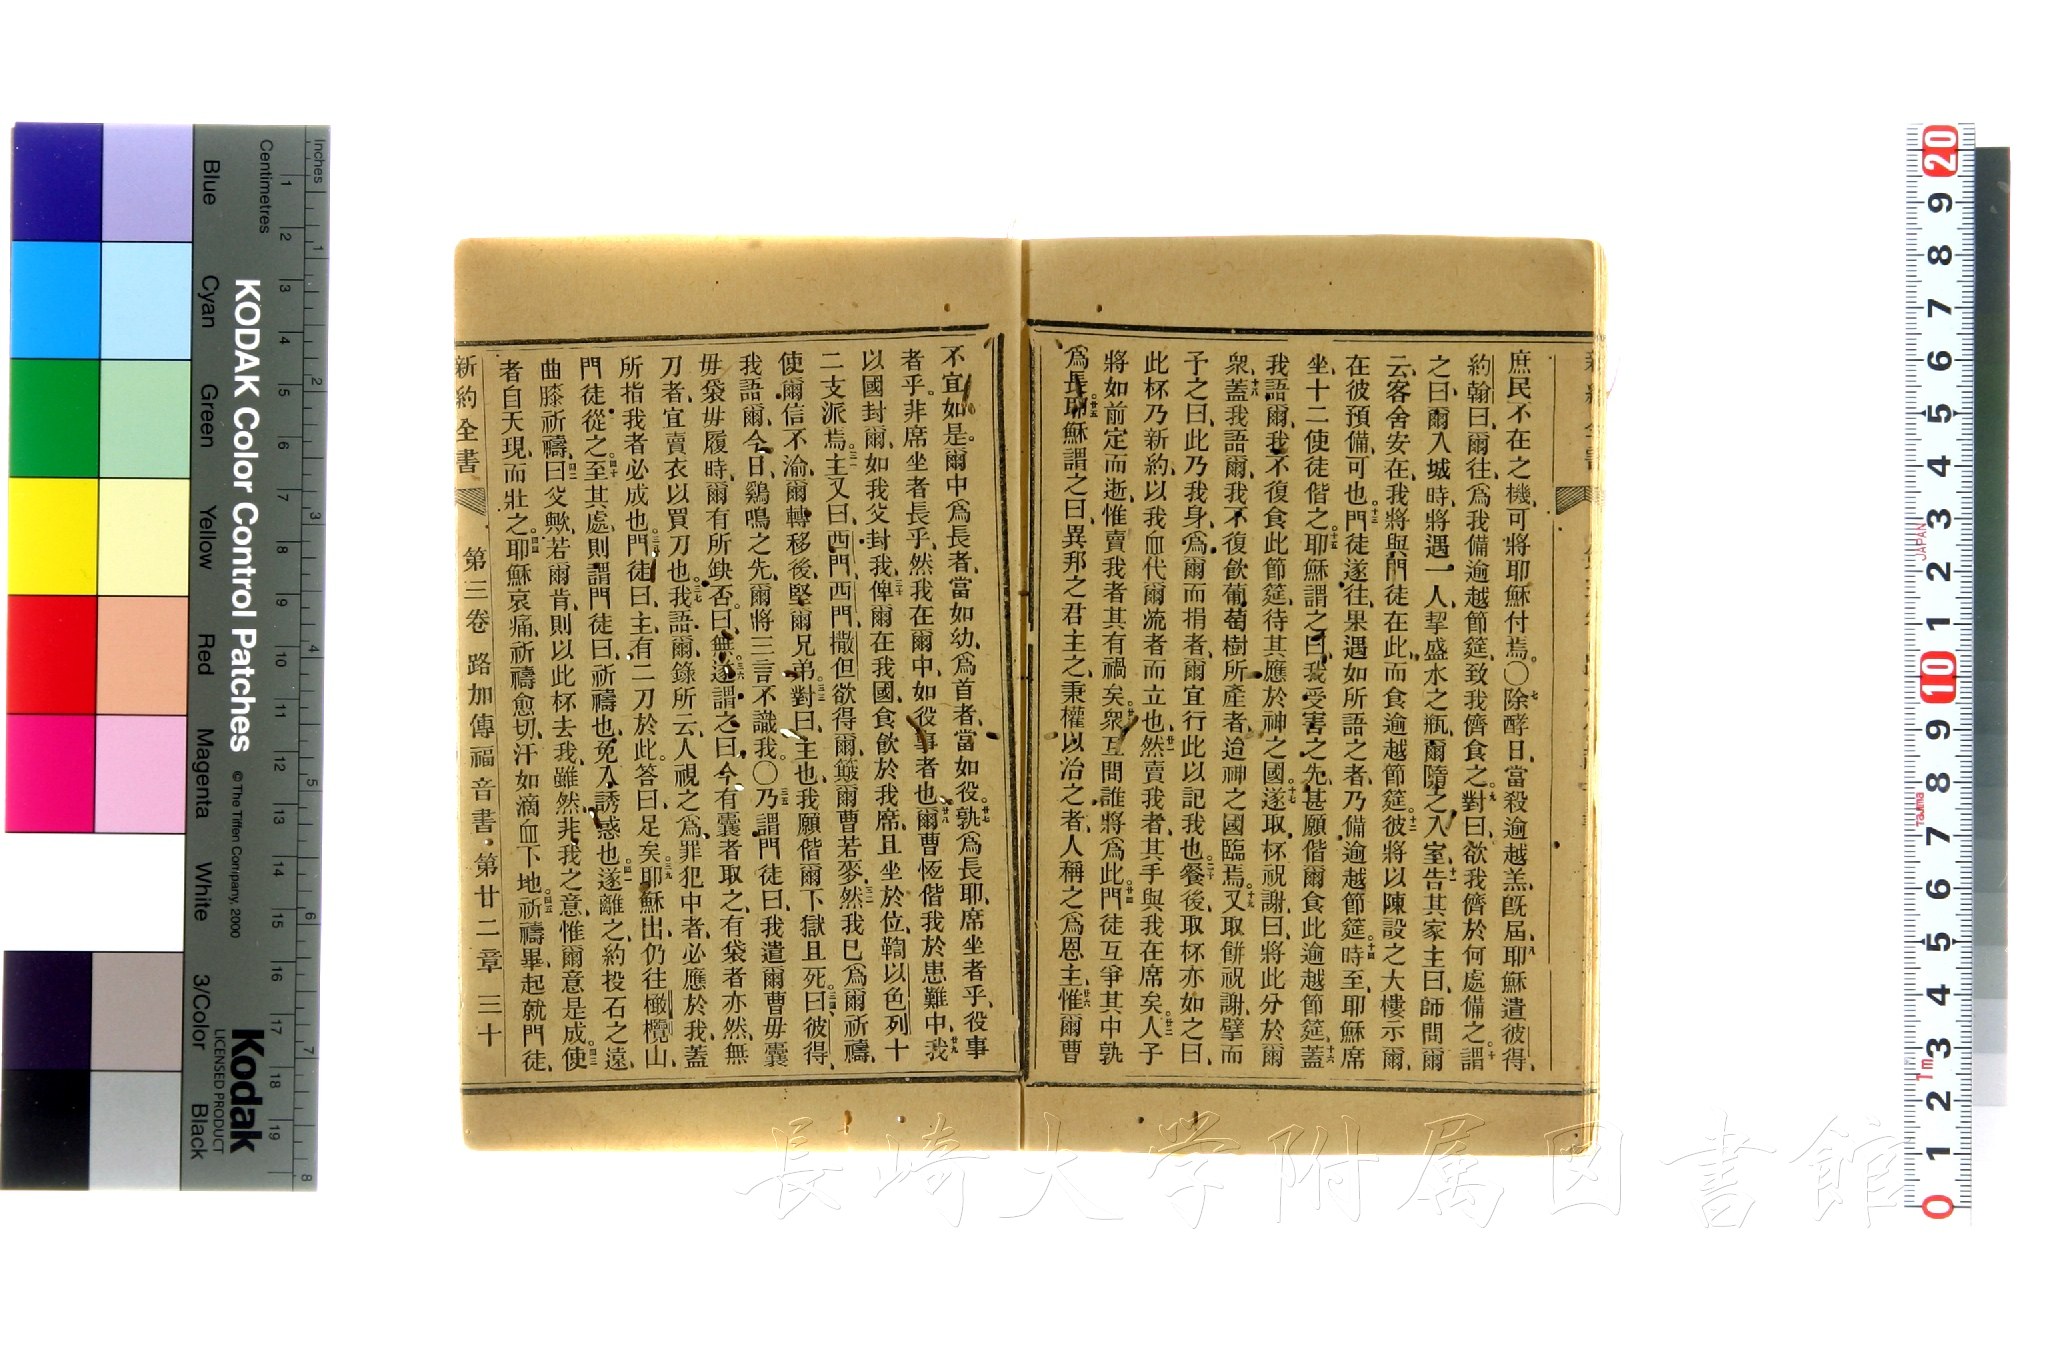 庶民不在之機、可將耶穌付焉。〇七除酵日、當殺逾越羔、旣屆、八耶穌遣彼得、
約翰曰、爾往、爲我備逾越節筵、致我儕食之。九對曰、欲我儕於何處備之。十謂
之曰、爾入城時、將遇一人、挈盛水之瓶、爾隨之入室、十一告其家主曰、師問爾
云、客舍安在、我將與門徒在此、而食逾越節筵。十二彼將以陳設之大樓示爾、
在彼預備、可也。十三門徒遂往、果遇如所語之者、乃備逾越節筵。十四時至、耶穌席
坐、十二使徒偕之。十五耶穌謂之曰、我受害之先、甚願偕爾食此逾越節筵、十六蓋
我語爾、我不復食此節筵、待其應於神之國。十七遂取杯祝謝曰、將此分於爾
衆、十八蓋我語爾、我不復飮葡萄樹所產者、迨神之國臨焉。十九又取餅祝謝、擘而
予之曰、此乃我身、爲爾而捐者、爾宜行此以記我也。二十餐後取杯亦如之曰、
此杯乃新約、以我血代爾流者而立也、廿一然賣我者、其手與我在席矣。廿二人子
將如前定而逝、惟賣我者其有禍矣。廿三衆互問誰將爲此。廿四門徒互爭其中孰
爲長。廿五耶穌謂之曰、異邦之君主之、秉權以治之者、人稱之爲恩主、廿六惟爾曹
不宜如是。爾中爲長者、當如幼、爲首者、當如役。廿七孰爲長耶、席坐者乎、役事
者乎。非席坐者長乎、然我在爾中、如役事者也。廿八爾曹恆偕我於患難中、廿九我
以國封爾、如我父封我、三十俾爾在我國、食飮於我席、且坐於位、鞫以色列十
二支派焉。三一主又曰、西門、西門、撒但欲得爾、簸爾曹若麥、三二然我已爲爾祈禱、
使爾信不渝、爾轉移後、堅爾兄弟。三三對曰、主也、我願偕爾下獄且死。三四曰、彼得、
我語爾、今日、鷄鳴之先、爾將三言不識我。〇三五乃謂門徒曰、我遣爾曹毋囊
毋袋毋履時、爾有所缺否。曰、無。三六遂謂之曰、今有囊者取之、有袋者亦然、無
刀者、宜賣衣以買刀也。三七我語爾、錄所云、人視之爲罪犯中者、必應於我、蓋
所指我者必成也。三八門徒曰、主、有二刀於此。答曰、足矣。三九耶穌出、仍往橄欖山、
門徒從之。四十至其處、則謂門徒曰、祈禱也、免入誘惑也。四一遂離之約投石之遠、
曲膝祈禱、四二曰、父歟、若爾肯、則以此杯去我、雖然、非我之意、惟爾意是成。四三使
者自天現、而壯之。四四耶穌哀痛、祈禱愈切、汗如滴血下地。四五祈禱畢、起就門徒、
新約全書 第三卷 路加傳福音書 第廿二章 三十
長崎大学附属図書館
KODAK Color Control Patches
© The Tiffen Company, 2000
Kodak
LICENSED PRODUCT
Inches
Centimetres
Blue Cyan Green Yellow Red Magenta White 3/Color Black
JAPAN
Tajima
1m